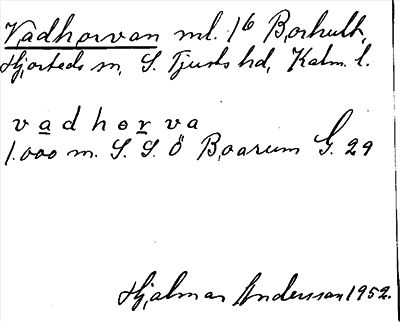 Vadhorvan ml. 1⁶ Borhult,
Hjorteds sn, S. Tjusts hd, Kalm. l.
vadhorva
1.000 m. S. S. Ö Boarum G. 29
Hjalmar Andersson 1952.